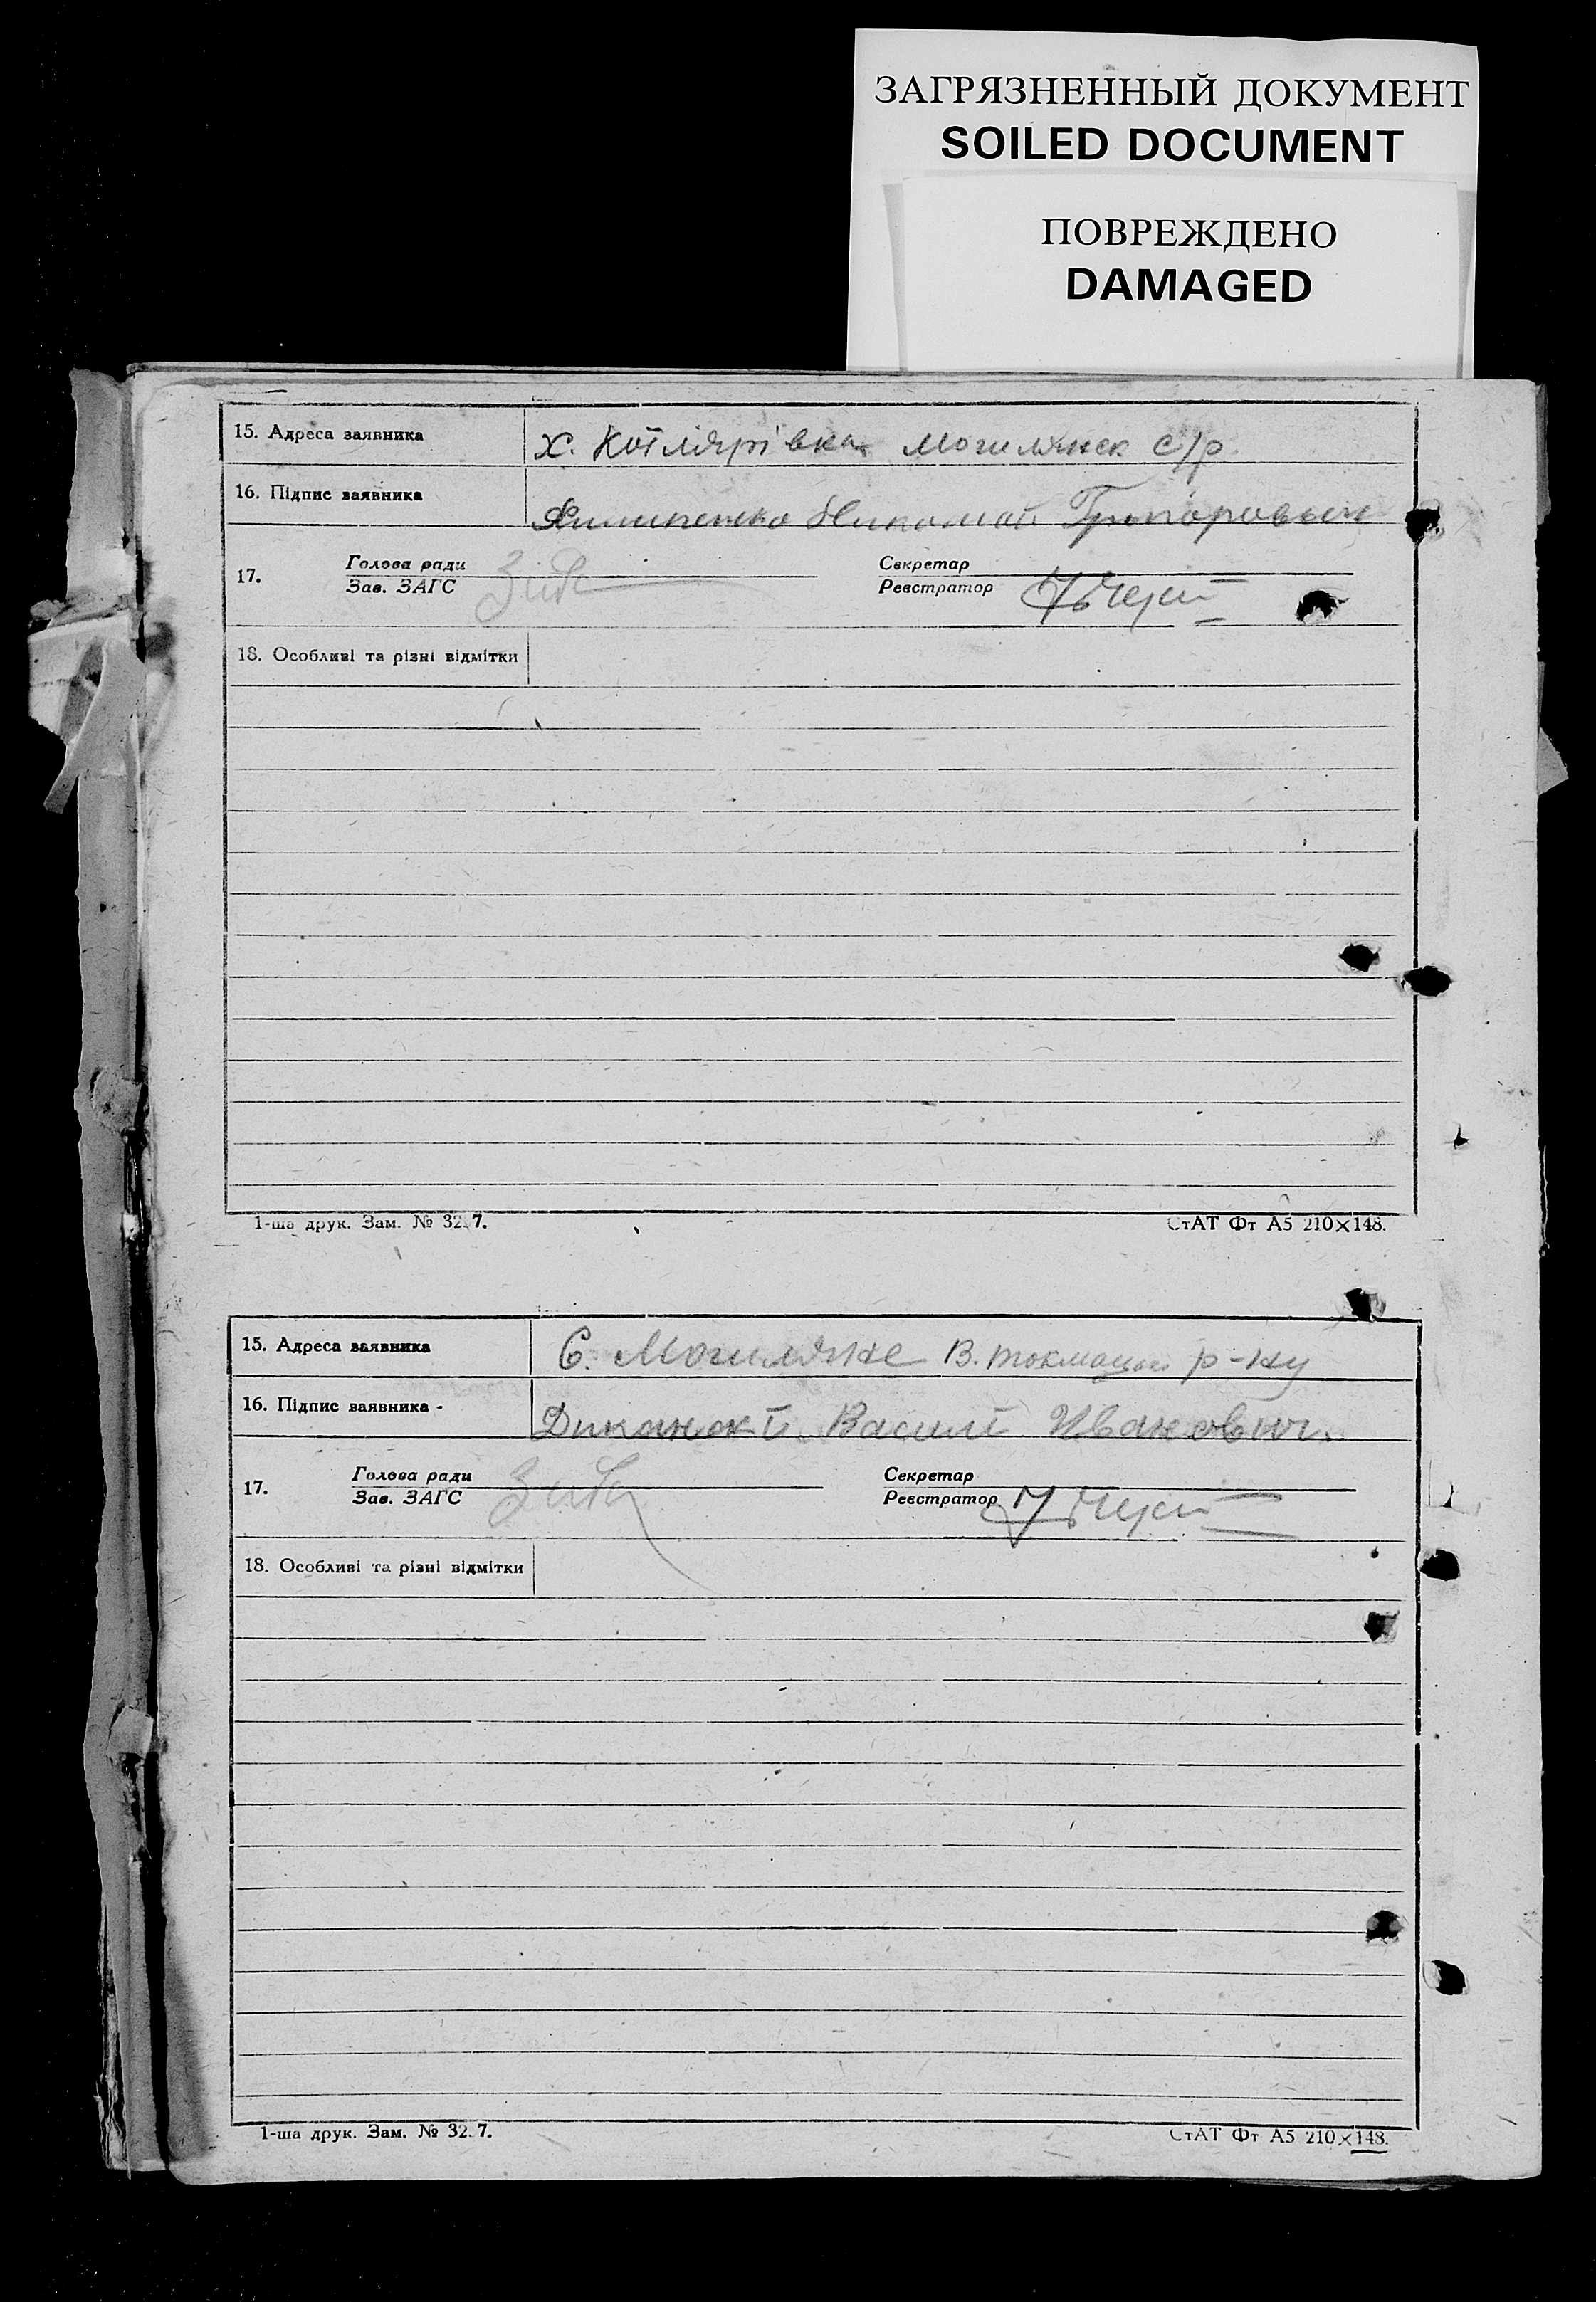 ЗАГРЯЗНЕННЫЙ ДОКУМЕНТ
SOILED DOCUMENT
ПОВРЕЖДЕНО
DAMAGED
15. Адреса заявника х. Котлярівка Могилянск с/р
16. Підпис заявника Григорович
17. Голова ради Секретар
Зав. ЗАГС Реєстратор
18. Особливі та різні відмітки
1-ша друк. Зам. № 32 7. СтАТ Фт А5 210×148.
15. Адреса заявника С. Могиляне В. Токмацьк р-ну
16. Підпис заявника - Василь Иванович.
17. Голова ради Секретар
Зав. ЗАГС Реєстратор
18. Особливі та різні відмітки
1-ша друк. Зам. № 32 7. СтАТ Фт А5 210×148.